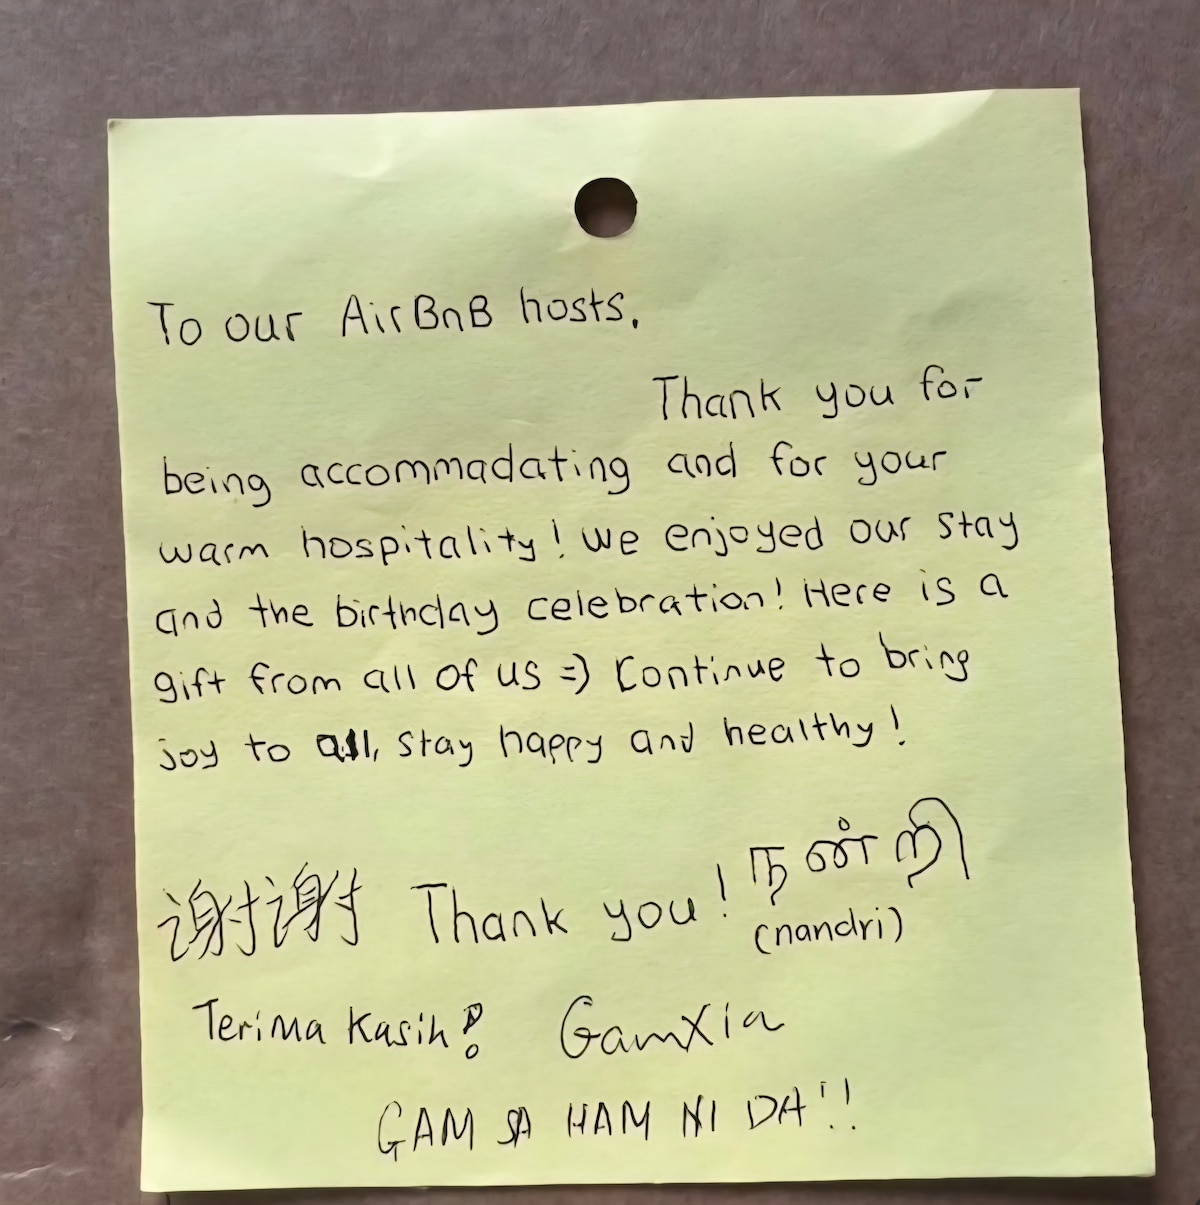 To our AirBnB hosts,
Thank you for
being accommadating and for your
warm hospitality! We enjoyed our stay
and the birthday celebration! Here is a
gift from all of us =) Continue to bring
joy to all, stay happy and healthy!
谢谢 Thank you! நன்றி
(nandri)
Terima Kasih! GamXia
GAM SA HAM NI DA!!